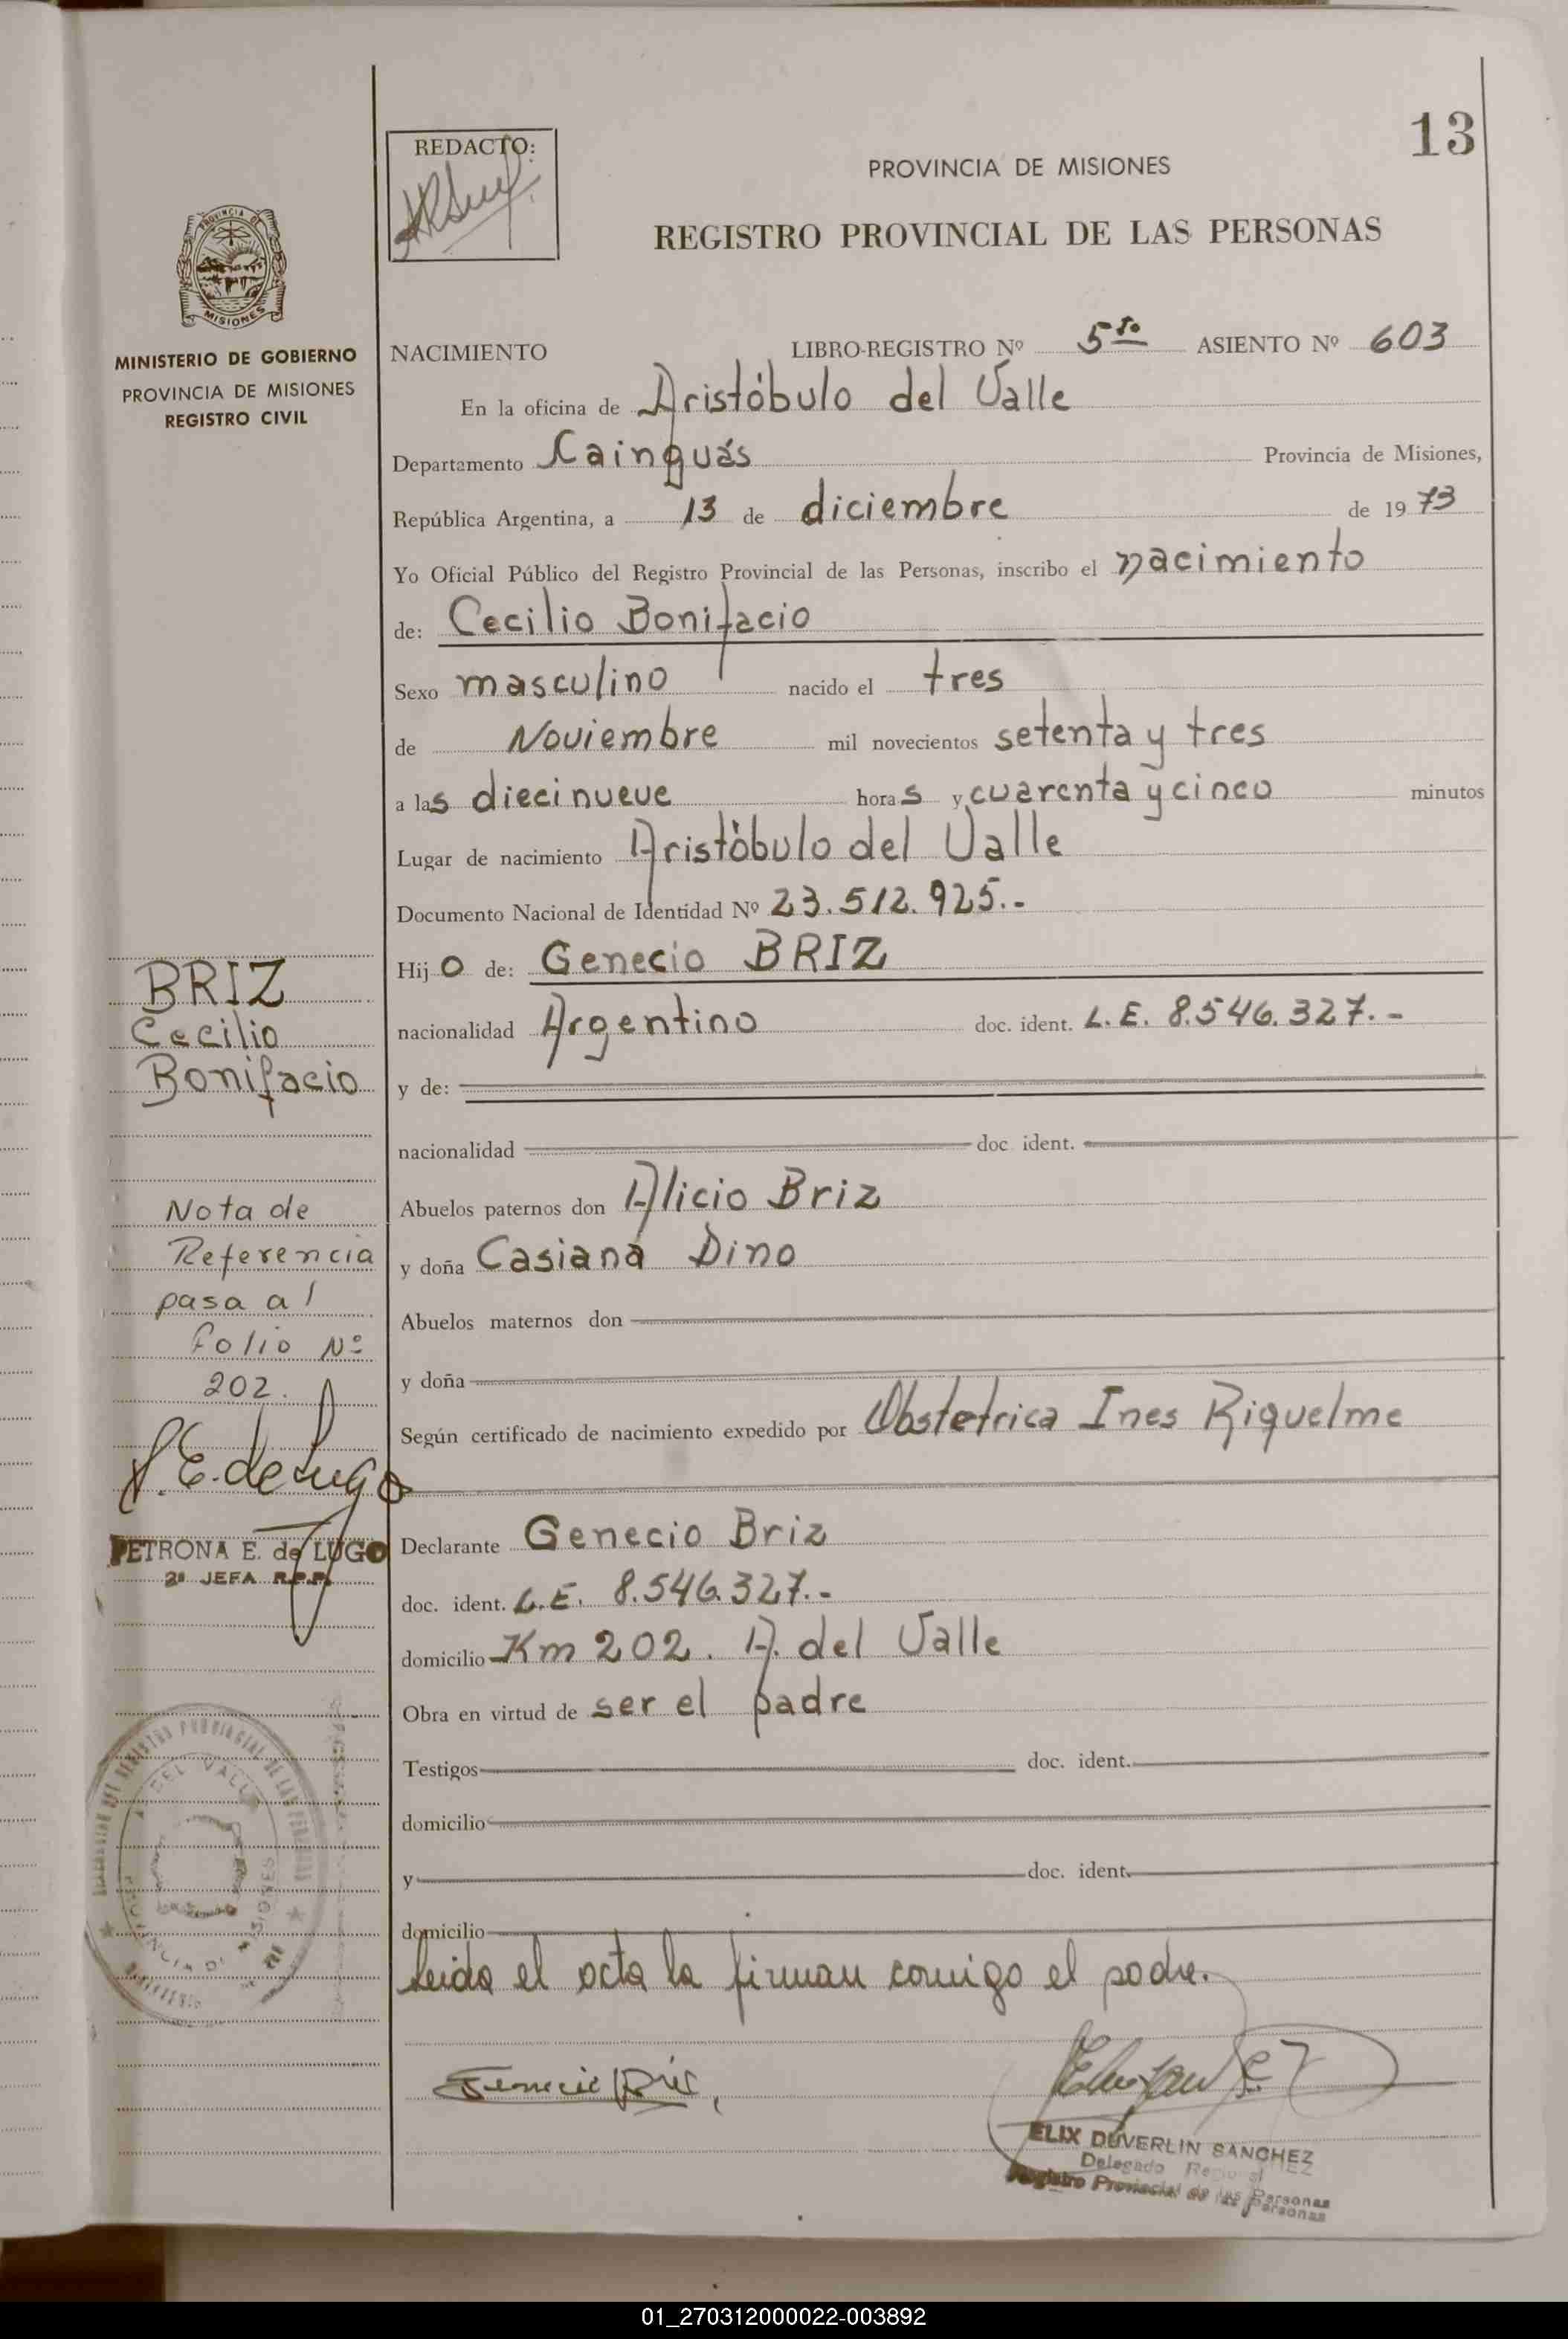 13
REDACTO:
PROVINCIA DE MISIONES
REGISTRO PROVINCIAL DE LAS PERSONAS
PROVINCIA DE
MISIONES
MINISTERIO DE GOBIERNO
PROVINCIA DE MISIONES
REGISTRO CIVIL
NACIMIENTO LIBRO-REGISTRO Nº 5to ASIENTO Nº 603
En la oficina de Aristóbulo del Valle
Departamento Cainguás Provincia de Misiones,
República Argentina, a 13 de diciembre de 1973
Yo Oficial Público del Registro Provincial de las Personas, inscribo el nacimiento
de: Cecilio Bonifacio
Sexo masculino nacido el tres
de Noviembre mil novecientos setenta y tres
a las diecinueve horas y cuarenta y cinco minutos
Lugar de nacimiento Aristóbulo del Valle
Documento Nacional de Identidad Nº 23.512.925.-
Hijo de: Genecio BRIZ
nacionalidad Argentino doc. ident. L.E. 8.546.327.-
y de:
nacionalidad doc. ident.
Abuelos paternos don Alicio Briz
y doña Casiana Dino
Abuelos maternos don
y doña
Según certificado de nacimiento expedido por Obstetrica Ines Riquelme
Declarante Genecio Briz
doc. ident. L.E. 8.546.327.-
domicilio Km 202. A. del Valle
Obra en virtud de ser el padre
Testigos doc. ident.
domicilio
y doc. ident.
domicilio
Leida el acta la firman conmigo el padre.
ELIX DUVERLIN SANCHEZ
Delegado Regional
Registro Provincial de las Personas
BRIZ
Cecilio
Bonifacio
Nota de
Referencia
pasa al
folio Nº
202.
P.E. de Lugo
PETRONA E. de LUGO
2ª JEFA R.P.P.
DEL VALLE
PROVINCIA DE MISIONES
01_270312000022-003892